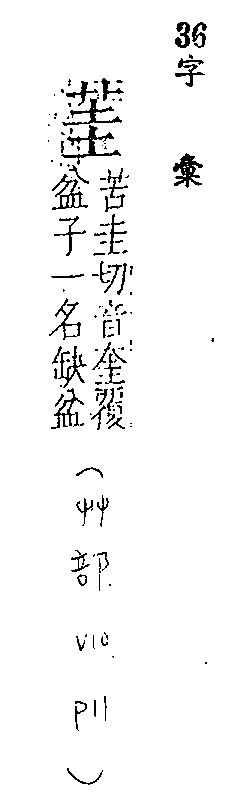 36
字彙
茥
苦圭切音奎覆
盆子一名缺盆
(艸部 V10 P11)